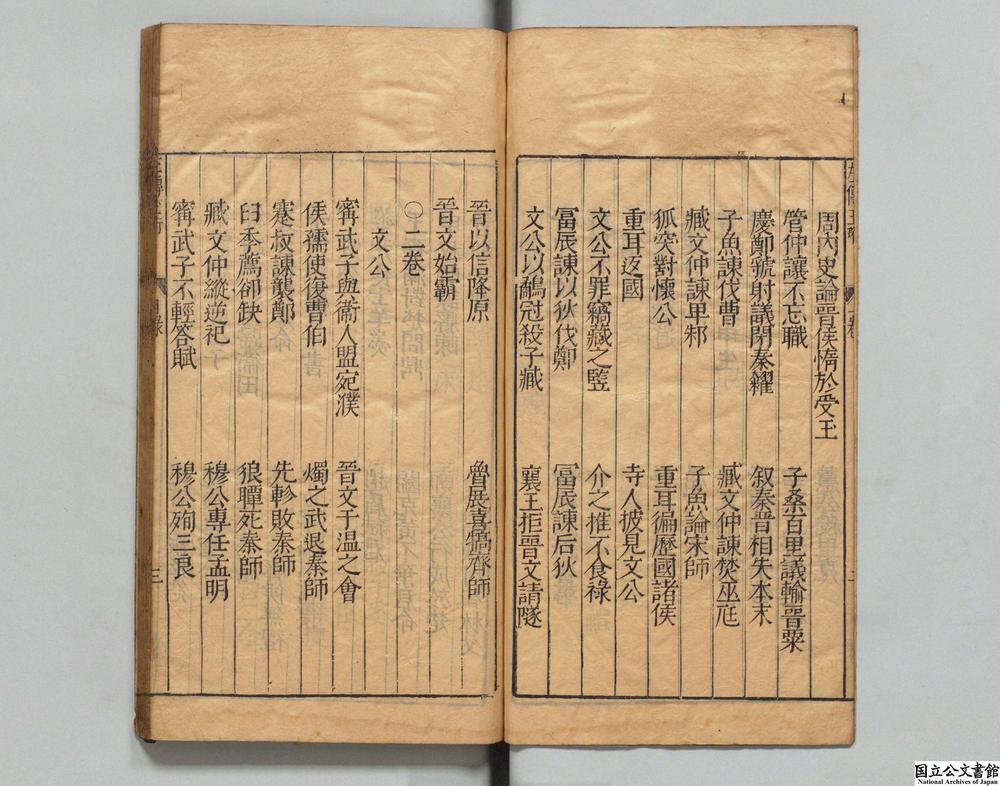 周內史論晉侯惰於受玉
管仲讓不忘職　子桑百里議輸晉粟
慶鄭虢射議閉秦糴　叙秦晉相失本末
子魚諫伐曹　臧文仲諫焚巫尪
臧文仲諫卑邾　子魚論宋師
狐突對懷公　重耳徧歷國諸侯
重耳返國　寺人披見文公
文公不罪竊藏之豎　介之推不食祿
冨辰諫以狄伐鄭　冨辰諫后狄
文公以鷸冠殺子臧　襄王拒晉文請隧
晉以信降原　魯展喜犒齊師
晉文始霸
〇二卷
文公
甯武子與衛人盟宛濮　晉文于温之會
侯獳使復曹伯　燭之武退秦師
蹇叔諫襲鄭　先軫敗秦師
臼季薦卻缺　狼瞫死秦師
臧文仲縱逆祀　穆公專任孟明
甯武子不輕答賦　穆公殉三良
目錄
三
国立公文書館
National Archives of Japan